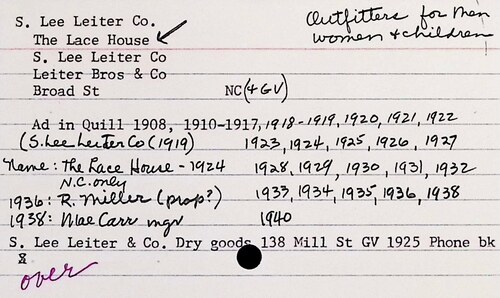 S. Lee Leiter Co.
Outfitters for men
women + children
The Lace House
S. Lee Leiter Co
Leiter Bros & Co
Broad St NC (+GV)
Ad in Quill 1908, 1910-1917, 1918-1919, 1920, 1921, 1922
(S. Lee Leiter Co (1919) 1923, 1924, 1925, 1926, 1927
Name: The Lace House - 1924 1928, 1929, 1930, 1931, 1932
N.C. only
1936: R. Miller (prop?) 1933, 1934, 1935, 1936, 1938
1938: Mae Carr mgr 1940
S. Lee Leiter & Co. Dry goods 138 Mill St GV 1925 Phone bk
8
over